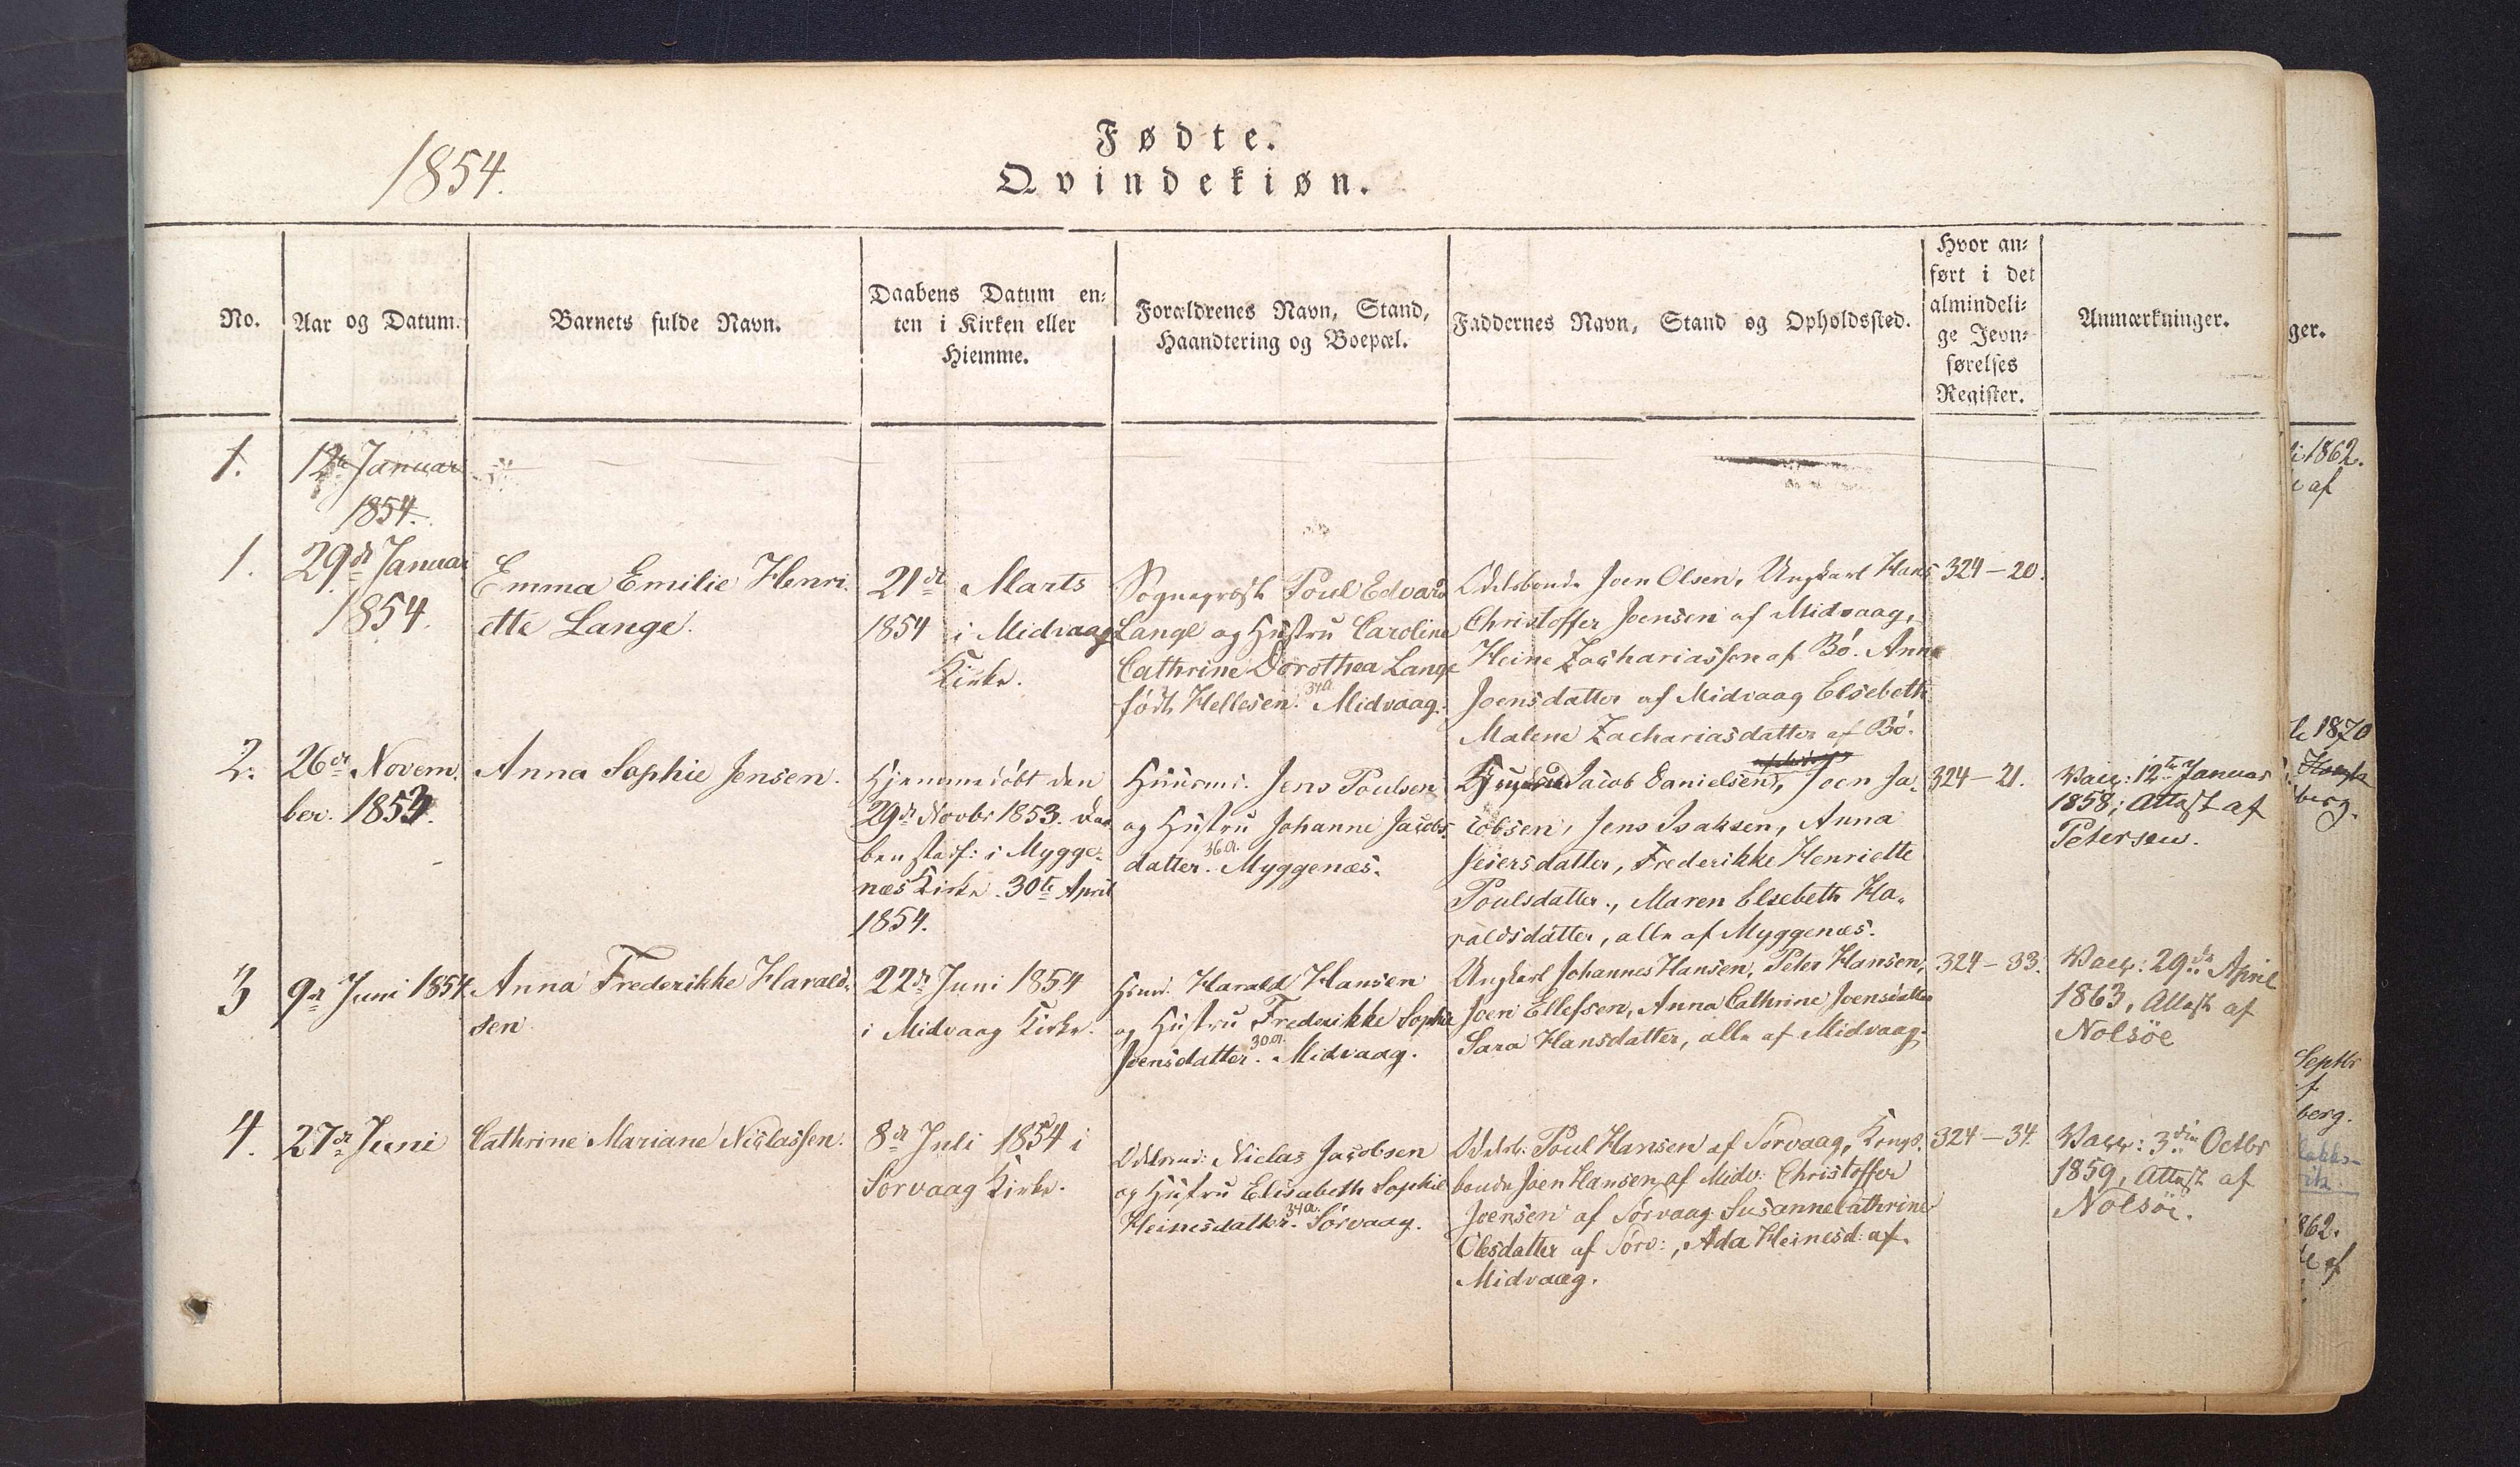 1854.
Fødte.
Qvindekiøn.
No.
Aar og Datum.
Barnets fulde Navn.
Daabens Datum en-
ten i Kirken eller
Hiemme.
Forældrenes Navn, Stand,
Haandtering og Boepæl.
Faddernes Navn, Stand og Opholdssted.
Hvor an-
ført i det
almindeli-
ge Jevn-
førelses
Register.
Anmærkninger.
1.
12te Januar
1854.
1.
29de Januar
1854.
Emma Emilie Henri-
ette Lange.
21de Marts
1854 i Midvaag
Kirke.
Sognepræst Poul Edvard
Lange og Hustru Caroline
Cathrine Dorothea Lange
født Hellesen. 34a. Midvaag.
Odelsbonde Joen Olsen, Ungkarl Hans
Christoffer Joensen af Midvaag,
Heine Zachariassen af Bö. Anna
Joensdatter af Midvaag Elsebeth
Malene Zachariasdatter af Bö.
324-20.
2.
26de Novem-
ber. 1853.
Anna Sophie Jensen.
Hjemmedöbt den
29de Novbr 1853. Daa-
ben stadf: i Mygge-
næs Kirke. 30te April
1854.
Huusmd. Jens Poulsen
og Hustru Johanne Jacobs-
datter. 36a. Myggenæs.
Jacob Danielsen, Joen Ja-
cobsen, Jens Isaksen, Anna
Jeiersdatter, Frederikke Henriette
Poulsdatter., Maren Elsebeth Ha-
raldsdatter, alle af Myggenæs.
324-21.
Vacc: 12te Januar
1858; Attest af
Petersen.
3
9de Juni 1854.
Anna Frederikke Harald-
sen
22de Juni 1854
i Midvaag Kirke.
Hmd. Harald Hansen
og Hustru Frederikke Sophie
Joensdatter. 30a. Midvaag.
Ungkarl Johannes Hansen, Peter Hansen,
Joen Ellefsen, Anna Cathrine Joensdatter
Sara Hansdatter, alle af Midvaag.
324-33.
Vacc: 29de April
1863, Attest af
Nolsöe
4.
27de Juni
Cathrine Mariane Niclassen.
8de Juli 1854 i
Sorvaag Kirke.
Odelsmd: Niclas Jacobsen
og Hustru Elisabeth Sophie
Heinesdatter. 34a. Sörvaag.
Odelsb: Poul Hansen af Sorvaag, Kongs-
bonde Joen Hansen af Midv: Christoffer
Joensen af Sorvaag Susanne Cathrine
Olesdatter af Sörv:, Ada Heinesd: af
Midvaag.
324-34.
Vacc: 3die Octbr
1859, Attest af
Nolsöe.
ger.
1862.
af
1870
berg.
Septbr
berg.
862.
af